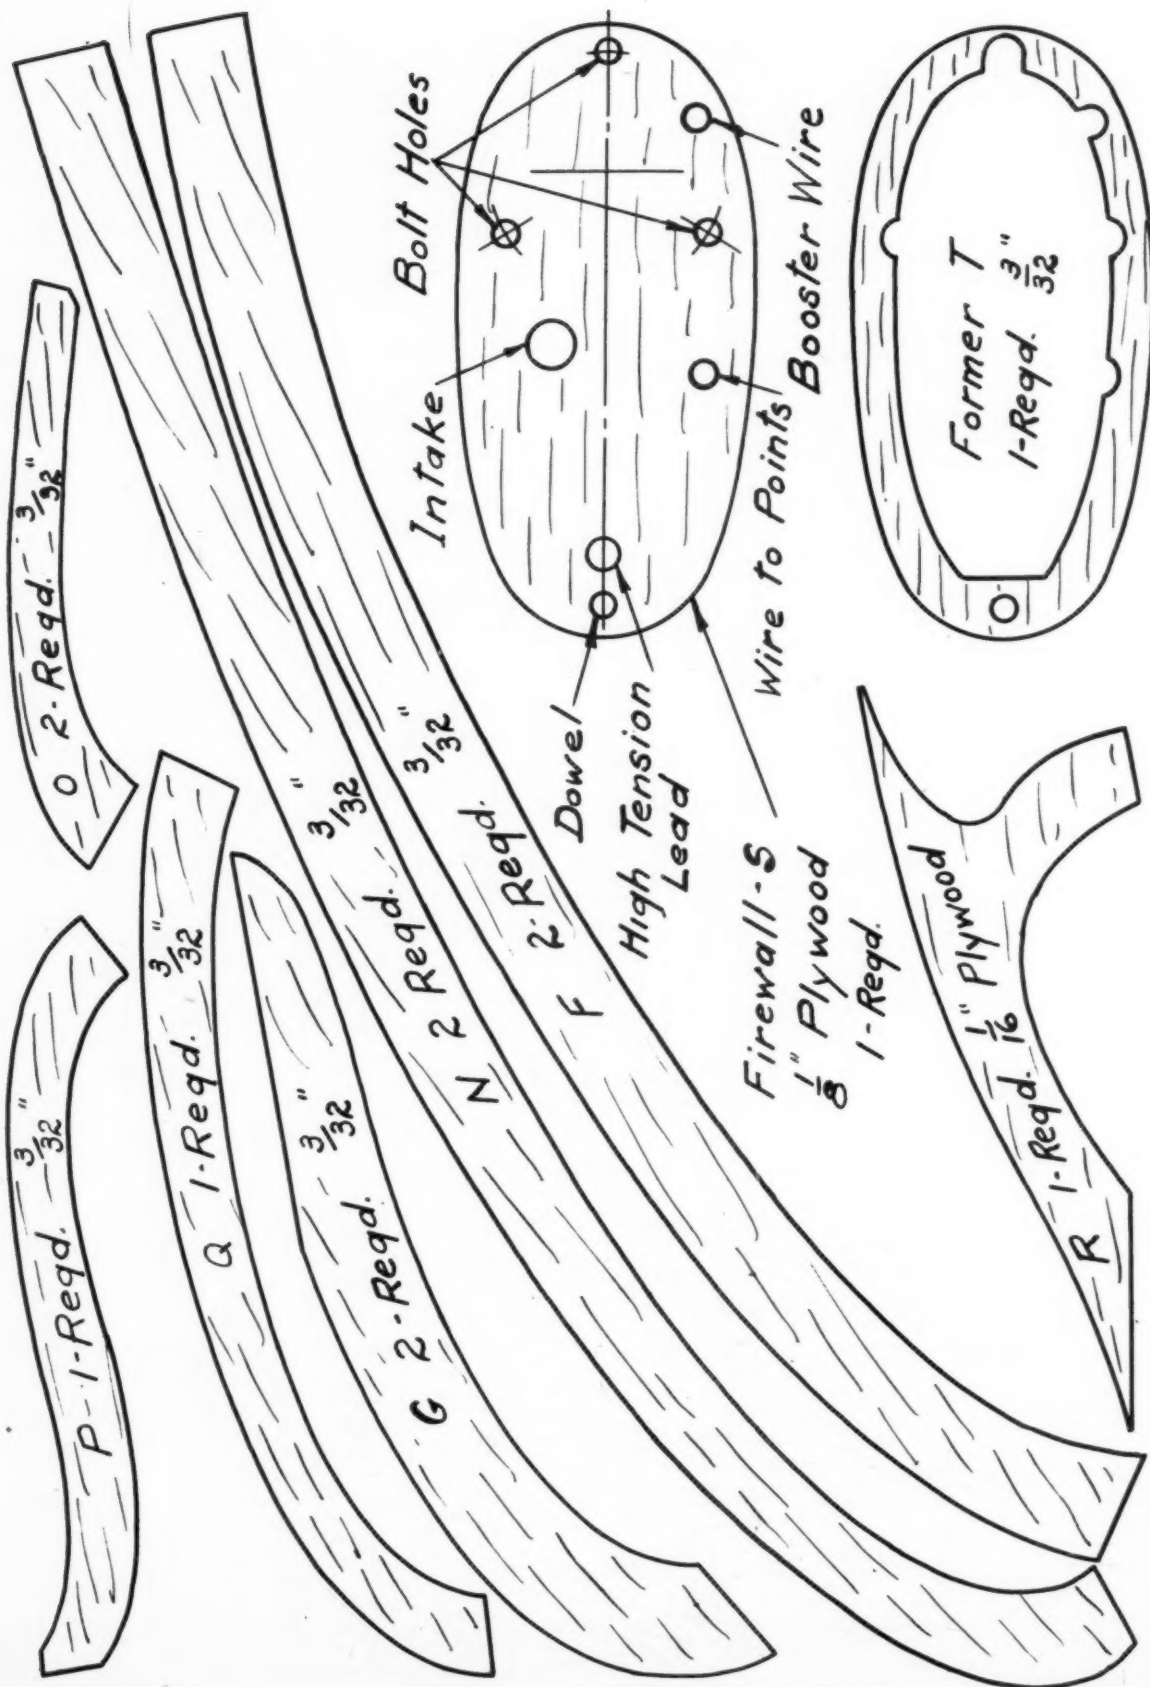 P-1-Reqd. 3/32"
O 2-Reqd. 3/32"
Q 1-Reqd. 3/32"
G 2-Reqd. 3/32"
N 2 Reqd. 3/32"
F 2-Reqd. 3/32"
Bolt Holes
Intake
Dowel
High Tension
Lead
Wire to Points
Booster Wire
Firewall-S
1/8" Plywood
1-Reqd.
Former T
1-Reqd. 3/32"
R 1-Reqd. 1/16" Plywood